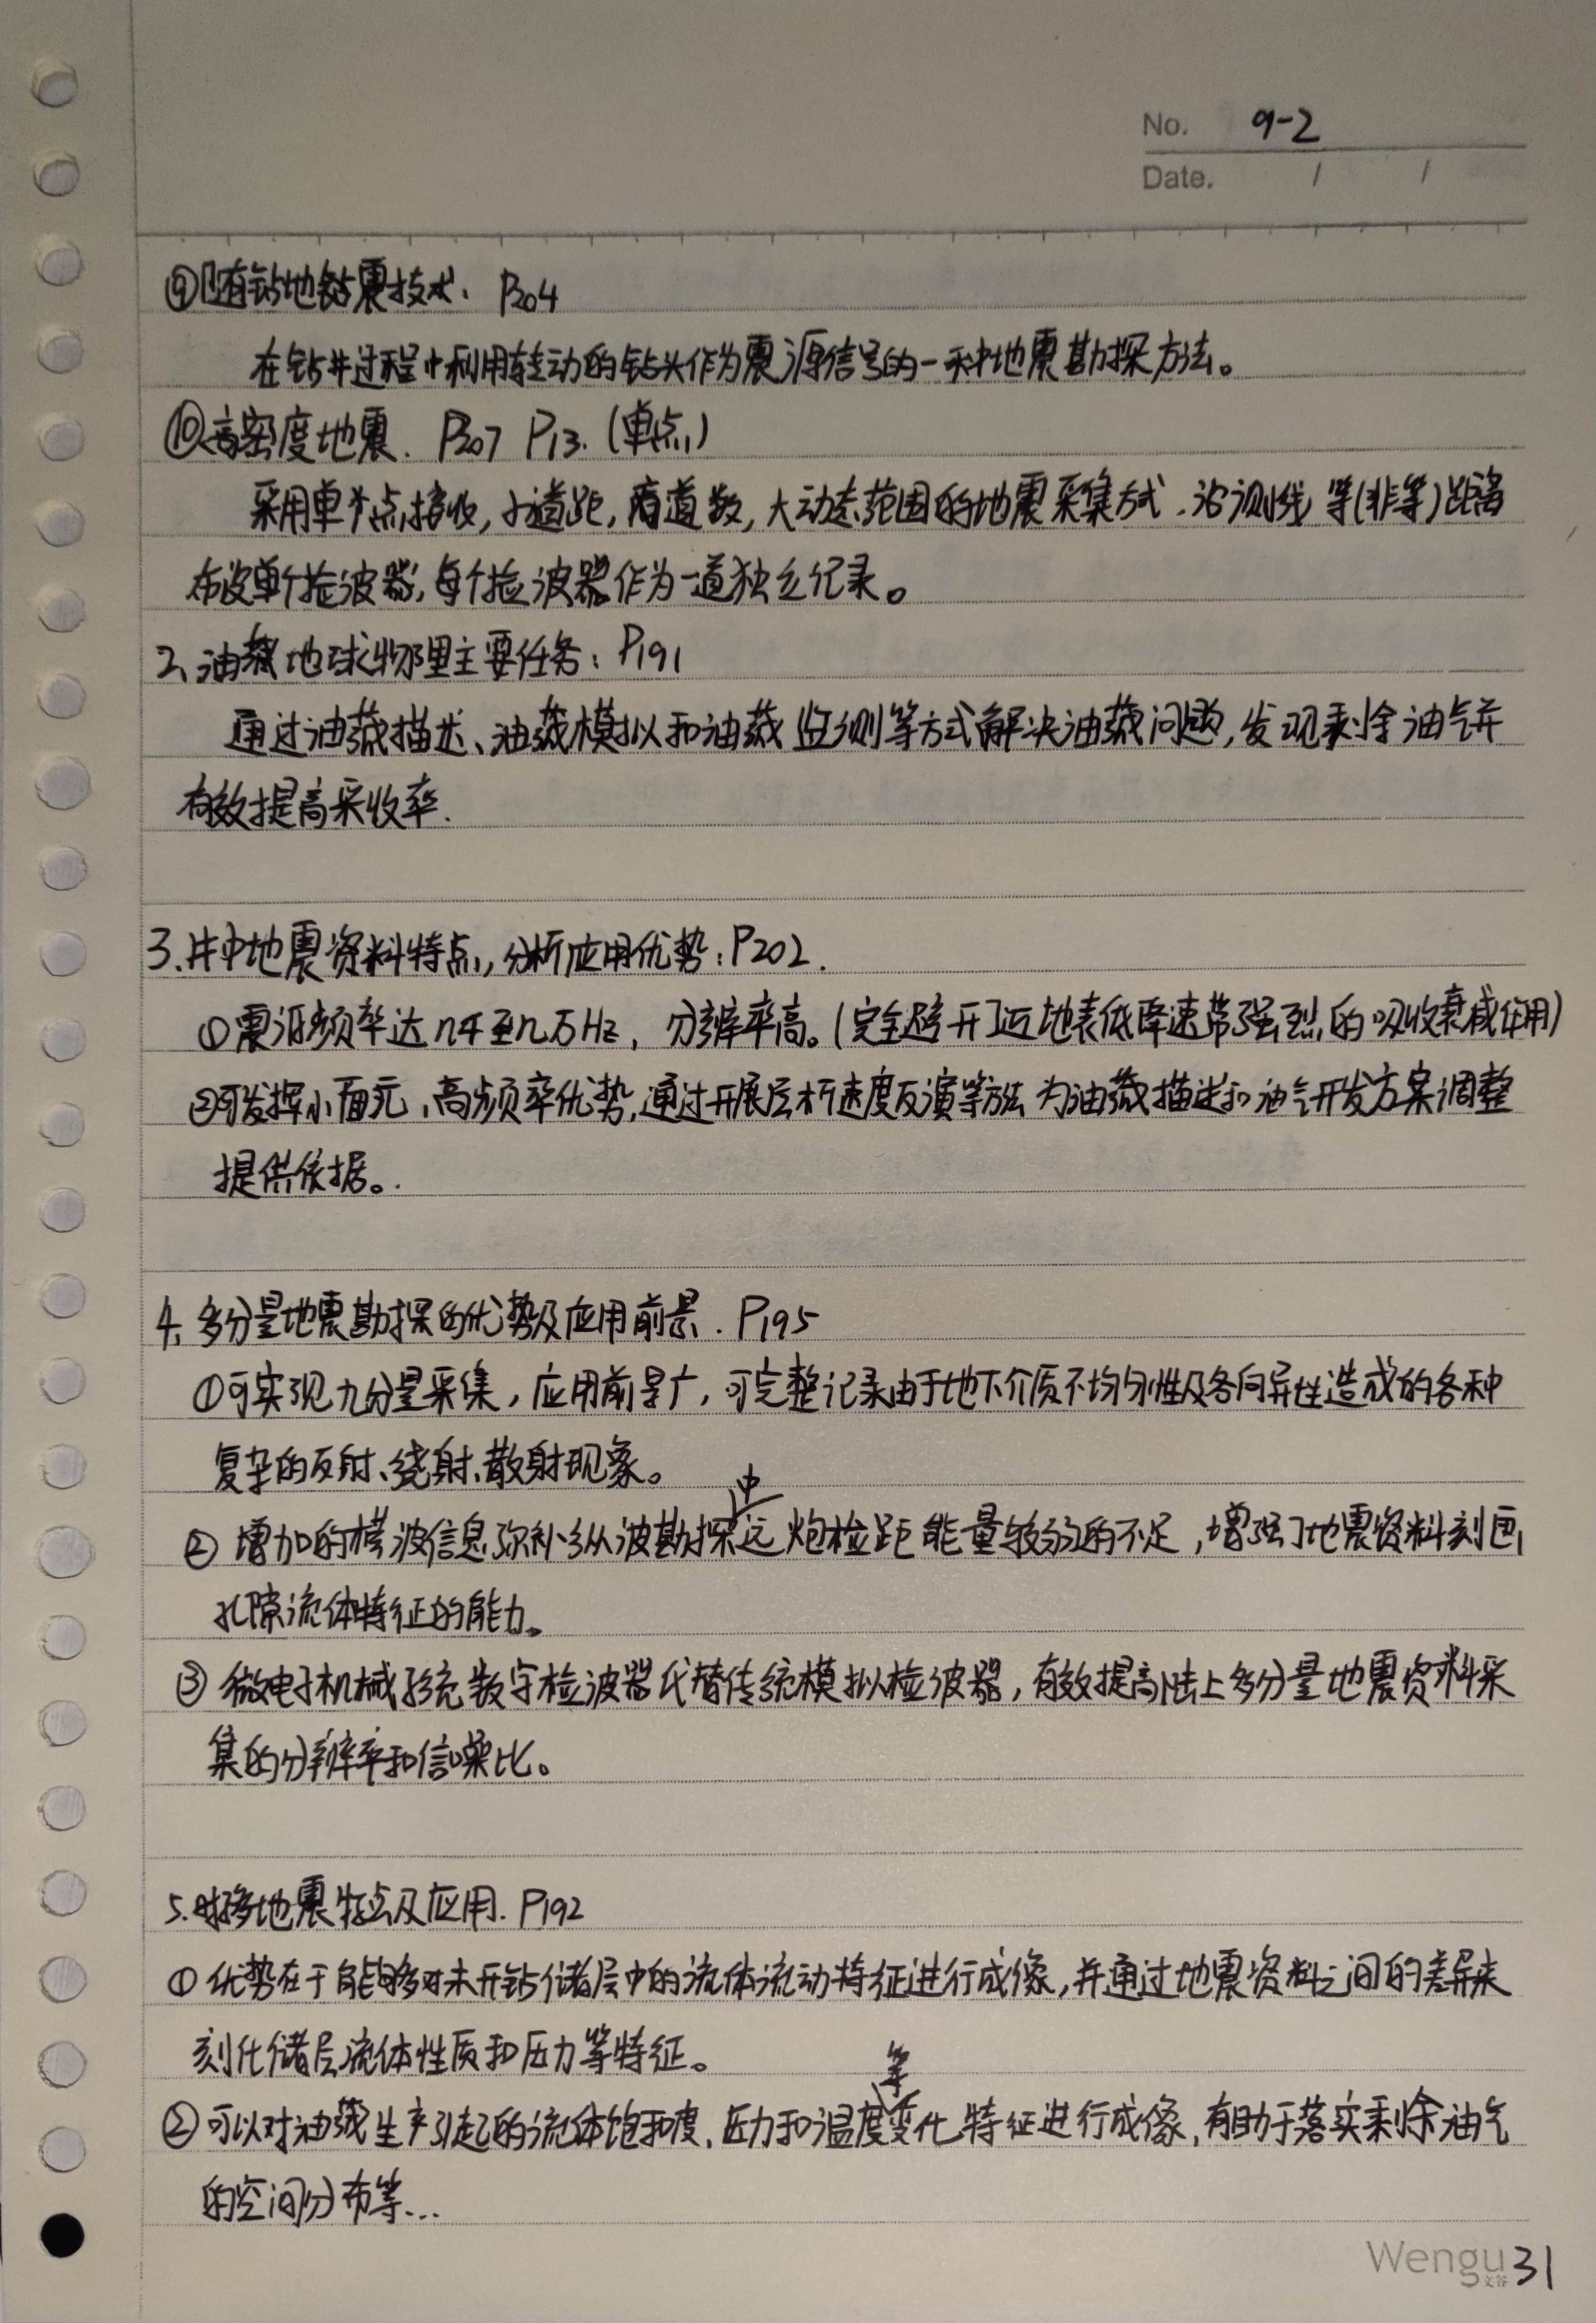 No. 9-2
Date. / /
⑨随钻地震技术. P204
在钻井过程中利用转动的钻头作为震源信号的一种地震勘探方法。
⑩高密度地震. P207 P13. (单点)
采用单个点接收, 小道距, 高道数, 大动态范围的地震采集方式. 沿测线 等(非等)距离
布设单个检波器, 每个检波器作为一道独立纪录。
2、油藏地球物理主要任务: P191
通过油藏描述、油藏模拟和油藏监测等方式解决油藏问题, 发现剩余油气并
有效提高采收率.
3.井中地震资料特点, 分析应用优势: P202.
①震源频率达几千至几万Hz, 分辨率高。(完全避开了近地表低降速带强烈的吸收衰减作用)
②可发挥小面元、高频率优势, 通过开展层析速度反演等方法 为油藏描述和油气开发方案调整
提供依据。.
4、多分量地震勘探的优势及应用前景. P195
①可实现九分量采集, 应用前景广, 可完整记录由于地下介质不均匀性及各向异性造成的各种
复杂的反射、绕射、散射现象。
② 增加的横波信息弥补纵波勘探中远炮检距能量较弱的不足, 增强了地震资料刻画
孔隙流体特征的能力。
③ 微电子机械系统数字检波器代替传统模拟检波器, 有效提高陆上多分量地震资料采
集的分辨率和信噪比。
5.时移地震特点及应用. P192
① 优势在于能够对未开钻储层中的流体流动特征进行成像, 并通过地震资料之间的差异来
刻化储层流体性质和压力等特征。
②可以对油藏生产引起的流体饱和度、压力和温度等变化特征进行成像, 有助于落实剩余油气
的空间分布等...
Wengu 文谷 31